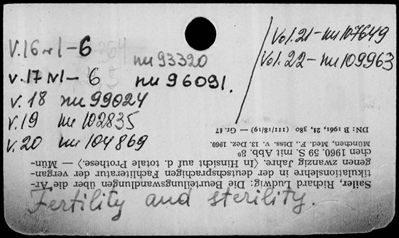 V.16 N1-6 nu 93320
V.17 N1-6 nu 96091.
V. 18 nu 99024
V.19 nu 102835
V. 20 nu 104869
Vol.21-nu 107649
Vol.22-nu 109963
Fertility and sterility.
Sailer, Richard Ludwig: Die Beurteilungswandlungen über die Ar-
tikulationslehre in der deutschsprachigen Fachliteratur der vergan-
genen zwanzig Jahre. (In Hinsicht auf d. totale Prothese.) — Mün-
chen 1960. 59 S. mit Abb. 8°
München, Med. F., Diss. v. 13. Dez. 1960.
DN: B 1961, 21, 380 (111/18/191) — Gr. 8†